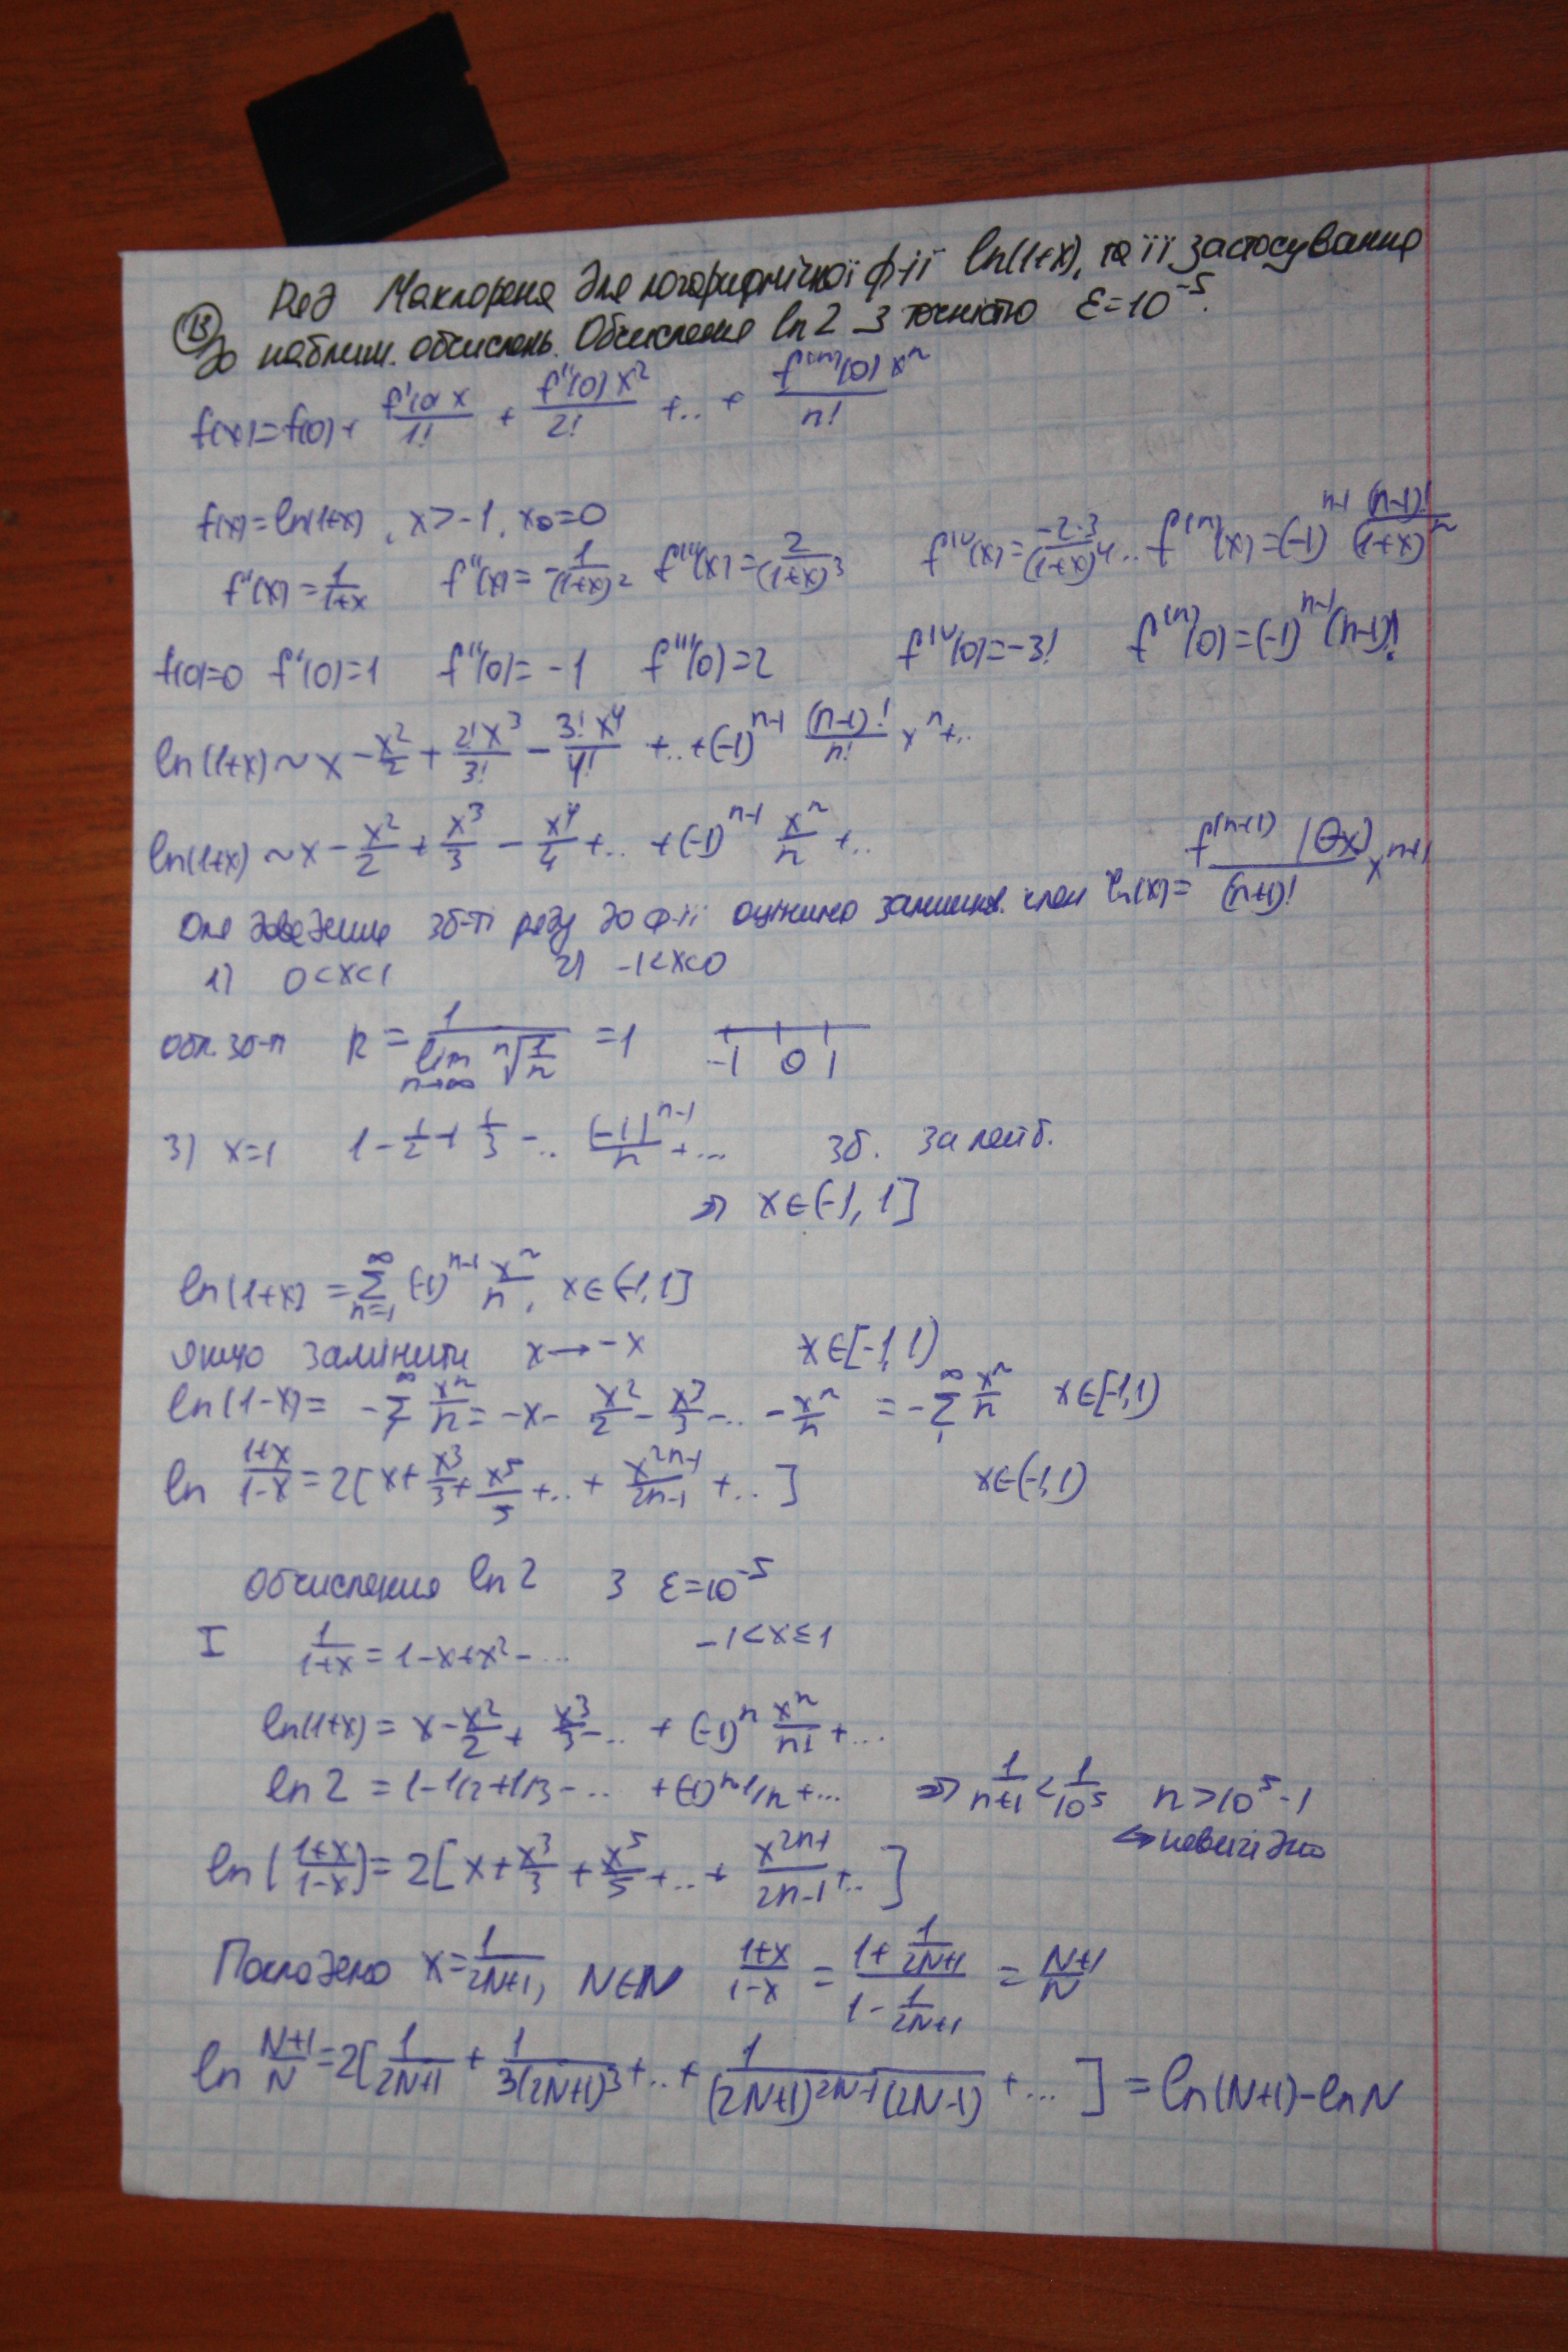 13 Ряд Маклорена для логарифмічної ф-ії ln(1+x), та її застосування
до наближ. обчислень. Обчислення ln2 з точністю ε=10^-5.
f(x)=f(0)+ f'(0)x/1! + f''(0)x^2/2! +..+ f^(n)(0)x^n/n!
f(x)=ln(1+x), x>-1, x0=0
f'(x)=1/(1+x) f''(x)=-1/(1+x)^2 f'''(x)=2/(1+x)^3 f^IV(x)=-2·3/(1+x)^4 .. f^(n)(x)=(-1)^(n-1) (n-1)!/(1+x)^n
f(0)=0 f'(0)=1 f''(0)=-1 f'''(0)=2 f^IV(0)=-3! f^(n)(0)=(-1)^(n-1)(n-1)!
ln(1+x)~x-x^2/2+2!x^3/3!-3!x^4/4!+..+(-1)^(n-1) (n-1)!/n! x^n+..
ln(1+x)~x-x^2/2+x^3/3-x^4/4+..+(-1)^(n-1) x^n/n+..
Для доведення зб-ті ряду до ф-ії оцінимо залишков. член (x)=f^(n+1)(Θx)/(n+1)! x^(n+1)
1) 0<x<1 2) -1<x<0
обл. зб-ті R=1/(lim n→∞ n√(1/n))=1 -1 0 1
3) x=1 1-1/2+1/3-.. (-1)^(n-1)/n+... зб. за лейб.
⇒ x∈(-1,1]
ln(1+x)=∑_(n=1)^∞ (-1)^(n-1) x^n/n, x∈(-1,1]
якщо замінити x→-x x∈[-1,1)
ln(1-x)=-∑_1^∞ x^n/n=-x-x^2/2-x^3/3-..-x^n/n=-∑_1^∞ x^n/n x∈[-1,1)
ln (1+x)/(1-x)=2[x+x^3/3+x^5/5+..+x^(2n-1)/(2n-1)+..] x∈(-1,1)
Обчислення ln2 з ε=10^-5
I 1/(1+x)=1-x+x^2-... -1<x≤1
ln(1+x)=x-x^2/2+x^3/3-..+(-1)^n x^n/n1+...
ln2=1-1/2+1/3-...+(-1)^(n-1)1/n+... ⇒ 1/(n+1)<1/10^5 n>10^5-1
↔ невигідно
ln((1+x)/(1-x))=2[x+x^3/3+x^5/5+..+x^(2n+1)/(2n-1)+..]
Покладемо x=1/(2N+1), N∈N (1+x)/(1-x)=(1+1/(2N+1))/(1-1/(2N+1))=(N+1)/N
ln (N+1)/N=2[1/(2N+1)+1/(3(2N+1)^3)+..+1/((2N+1)^(2N-1)(2N-1))+...]=ln(N+1)-lnN